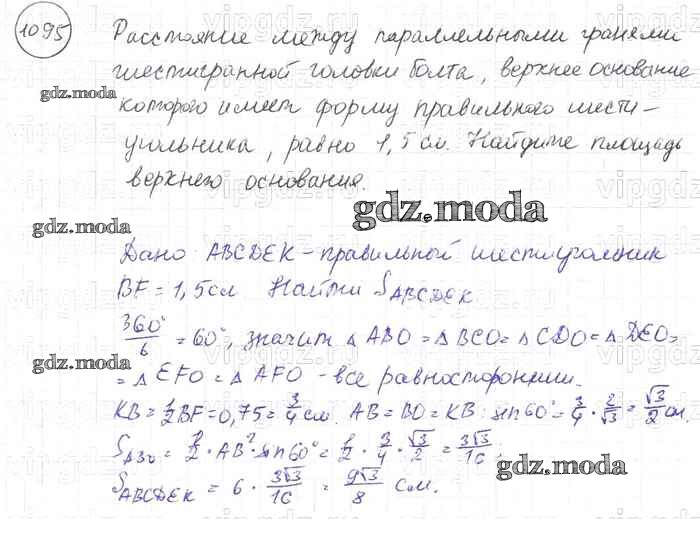 1095
Расстояние между параллельными гранями
шестигранной головки болта, верхнее основание
gdz.moda
которого имеет форму правильного шести-
угольника, равно 1,5 см. Найдите площадь
верхнего основания.
gdz.moda
gdz.moda
Дано ABCDEK - правильной шестиугольник
BF = 1,5 см Найти S_ABCDEK
360°/6 = 60°, значит △ ABO = △ BCO = △ CDO = △ DEO =
= △ EFO = △ AFO - все равносторонними.
gdz.moda
KB = 1/2 BF = 0,75 = 3/4 см. AB = BO = KB : sin 60° = 3/4 · 2/√3 = √3/2 см.
S_ABO = 1/2 · AB² · sin 60° = 1/2 · 3/4 · √3/2 = 3√3/16
gdz.moda
S_ABCDEK = 6 · 3√3/16 = 9√3/8 см.